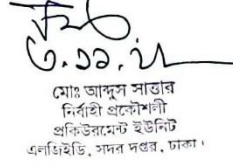 ৩.১১.২১
মোঃ আব্দুস সাত্তার
নির্বাহী প্রকৌশলী
প্রকিউরমেন্ট ইউনিট
এলজিইডি, সদর দপ্তর, ঢাকা।